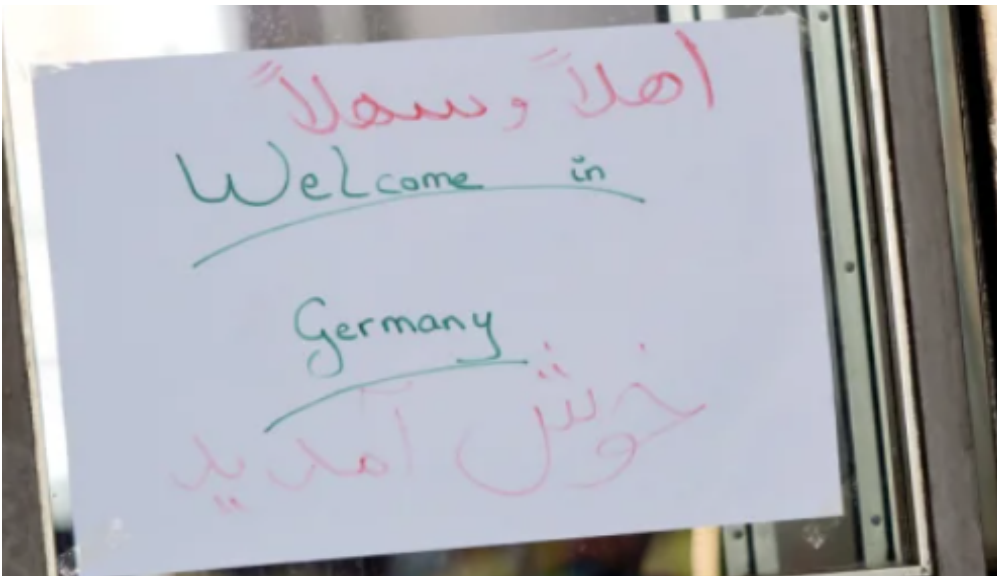 اهلاً و سهلاً
Welcome in
Germany
خوش آمدید